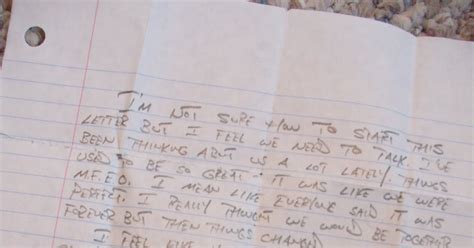 I'M NOT SURE HOW TO START THIS
LETTER BUT I FEEL WE NEED TO TALK. I'VE
BEEN THINKING ABUT US A LOT LATELY THINGS
USED TO BE SO GREAT - IT WAS LIKE WE WERE
M.F.E.O. I MEAN LIKE EVERYONE SAID IT WAS
PERFECT. I REALLY THOUGHT WE WOULD BE TOGETHER
FOREVER BUT THEN THINGS CHANGED
I FEEL LIKE